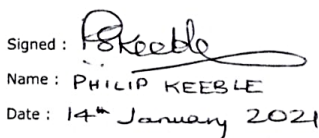 Signed : PSKeeble
Name : PHILIP KEEBLE
Date : 14th January 2021